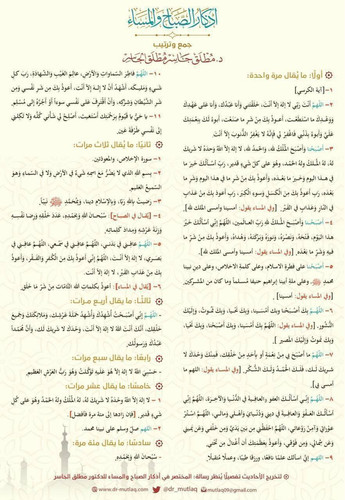 أذكار الصباح والمساء
جمع وترتيب
د. مطلق جاسر مطلق الجاسر
أولًا: ما يُقال مرة واحدة:
١- [آية الكرسي]
٢- اللهم أنت ربي لا إله إلا أنت، خلقتني وأنا عبدك، وأنا على عهدك
ووعدك ما استطعت، أعوذ بك من شر ما صنعت، أبوء لك بنعمتك
عليَّ وأبوء بذنبي فاغفر لي فإنه لا يغفر الذنوب إلا أنت
٣- أصبحنا وأصبح الملك لله، والحمد لله، لا إله إلا الله وحدة لا شريك
له، له الملك وله الحمد، وهو على كل شيء قدير، رب أسألك خير ما
في هذا اليوم وخير ما بعده، وأعوذ بك من شر ما في هذا اليوم وشر ما
بعده، رب أعوذ بك من الكسل وسوء الكبر، رب أعوذ بك من عذاب
في النار وعذاب في القبر [وفي المساء يقول: أمسينا وأمسى الملك لله]
٤- أصبحنا وأصبح الملك لله رب العالمين، اللهم إني أسألك خير
هذا اليوم، فتحه، ونصره، ونوره وبركته، وهداه، وأعوذ بك من شر ما
فيه وشر ما بعده. [وفي المساء يقول: أمسينا وأمسى الملك لله]
٥- أصبحنا على فطرة الإسلام، وعلى كلمة الإخلاص، وعلى دين نبينا
محمد ﷺ، وعلى ملة أبينا إبراهيم حنيفا مسلما وما كان من المشركين.
[وفي المساء يقول: أمسينا]
٦- اللهم بك أصبحنا، وبك أمسينا، وبك نحيا، وبك نموت، وإليك
النشور. [وفي المساء يقول: اللهم بك أمسينا، وبك أصبحنا، وبك نحيا،
وبك نموت وإليك المصير]
٧- اللهم ما أصبح بي من نعمة أو بأحد من خلقك، فمنك وحدك لا
شريك لك، فلك الحمد ولك الشكر. [وفي المساء يقول: اللهم ما
أمسى بي].
٨- اللهم إني أسألك العفو والعافية في الدنيا والآخرة، اللهم إني
أسألك العفو والعافية في ديني ودنياي وأهلي ومالي، اللهم استر
عوراتي وآمن روعاتي، اللهم احفظني من بين يدي ومن خلفي وعن يميني
وعن شمالي، ومن فوقي، وأعوذ بعظمتك أن أغتال من تحتي
٩- اللهم إني أسألك علما نافعا، ورزقا طيبا، وعملا متقبلًا.
١٠- اللهم فاطر السماوات والأرض، عالم الغيب والشهادة، رب كل
شيء ومليكه، أشهد أن لا إله إلا أنت، أعوذ بك من شر نفسي ومن
شر الشيطان وشركه، وأن أقترف على نفسي سوءا أو أجره إلى مسلم.
١١- يا حي يا قيوم برحمتك أستغيث، أصلح لي شأني كله ولا تكلني
إلى نفسي طرفة عين
ثانيًا: ما يُقال ثلاث مرات:
١- سورة الإخلاص، والمعوذتين.
٢- بسم الله الذي لا يضر مع اسمه شيء في الأرض ولا في السماء وهو
السميع العليم.
٣- رضيت بالله ربا، وبالإسلام دينا، وبمحمد ﷺ نبيا.
٤- [يقال في الصباح]: سبحان الله وبحمده، عدد خلقه ورضا نفسه
وزنة عرشه ومداد كلماته.
٥- اللهم عافني في بدني، اللهم عافني في سمعي، اللهم عافني في
بصري، لا إله إلا أنت، اللهم إني أعوذ بك من الكفر والفقر، وأعوذ
بك من عذاب القبر، لا إله إلا أنت.
٦- [يقال في المساء]: أعوذ بكلمات الله التامات من شر ما خلق
ثالثًا: ما يُقال أربع مرات:
- اللهم إني أصبحت أشهدك وأشهد حملة عرشك، وملائكتك وجميع
خلقك، أنك أنت الله لا إله إلا أنت، وحدك لا شريك لك، وأن محمدا
عبدك ورسولك.
رابعًا: ما يُقال سبع مرات:
- حسبي الله لا إله إلا هو عليه توكلت وهو رب العرش العظيم
خامسًا: ما يُقال عشر مرات:
١- لا إله إلا الله وحده لا شريك له، له الملك وله الحمد وهو على كل
شيء قدير. [فإن زادها إلى مئة مرة فأفضل]
٢- اللهم صل وسلم على نبينا محمد.
سادسًا: ما يُقال مئة مرة:
- سبحان الله وبحمده.
لتخريج الأحاديث تفصيلًا يُنظر رسالة: المختصر في أذكار الصباح والمساء للدكتور مطلق الجاسر
www.dr-mutlaq.com @dr_mutlaq mutlaq9@gmail.com